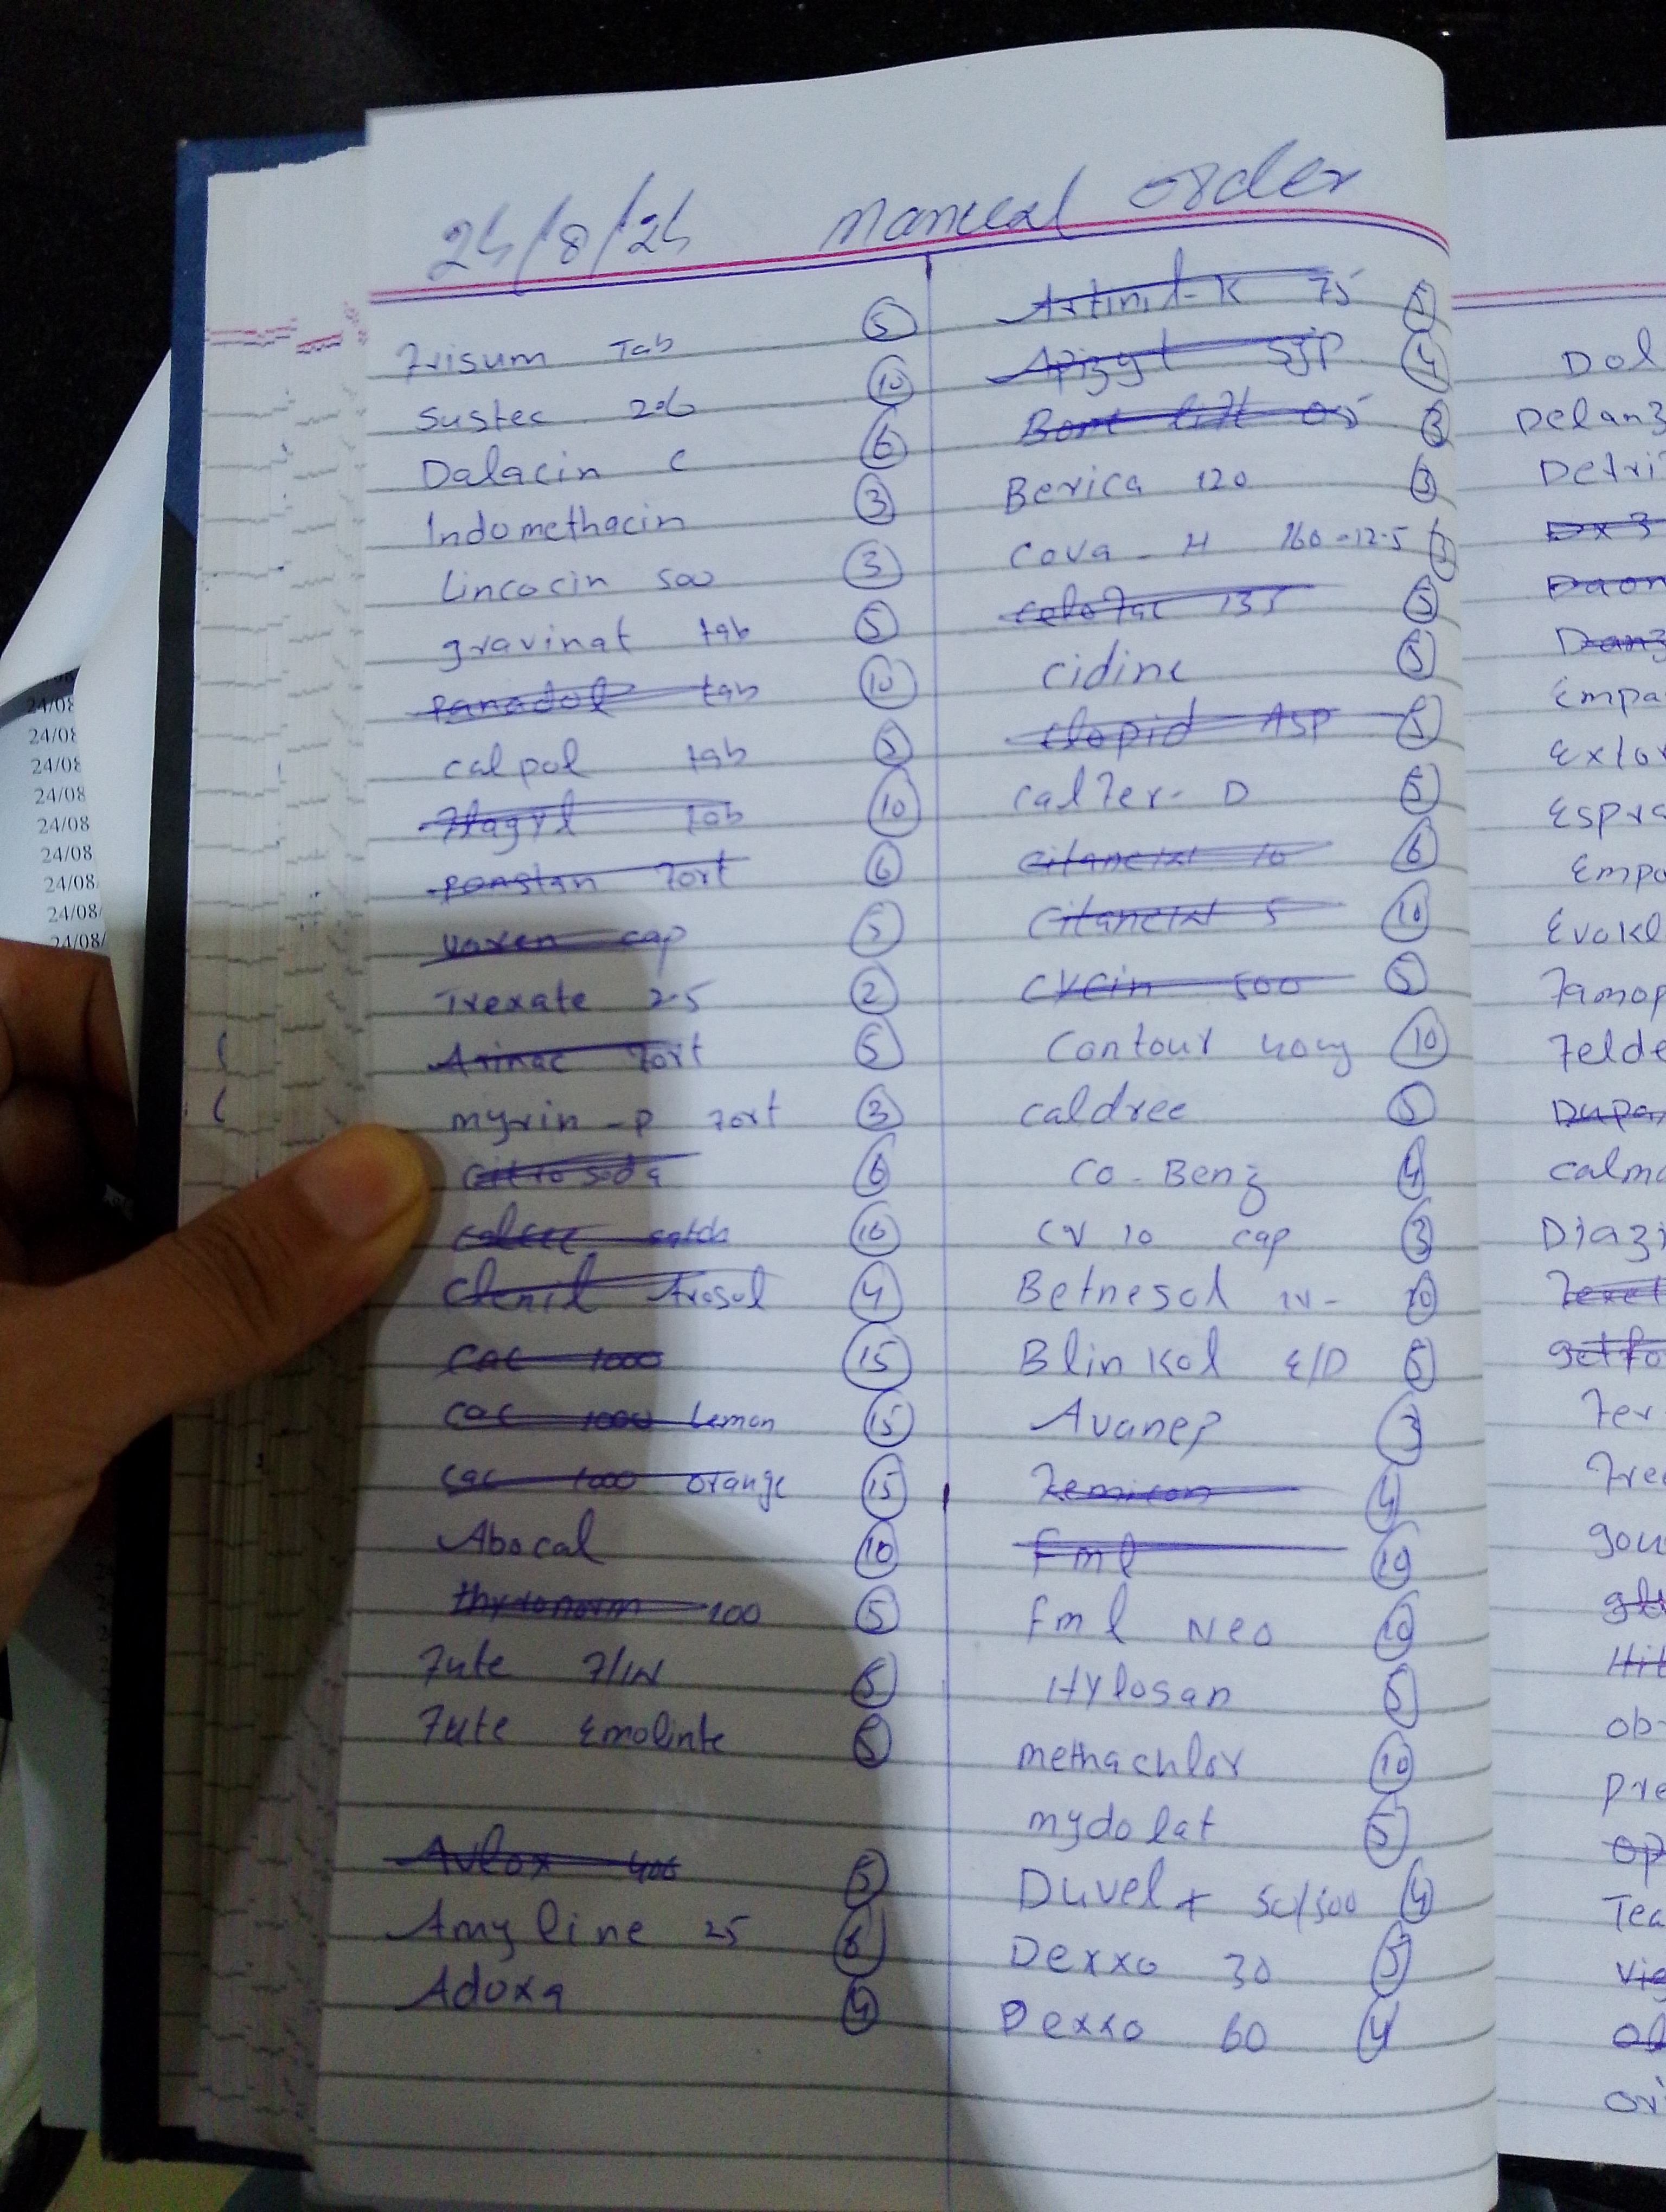 24/8/24 manual order
Frisum Tab 5
Sustec 2% 10
Dalacin C 6
Indomethacin 3
Lincocin 500 3
gravinat tab 5
panadol tab 10
calpol tab 5
Flagyl tab 10
ponstan Fort 6
voren cap 5
Trexate 2.5 2
Arinac Fort 5
myrin-p Fort 3
citro soda 6
10
Clenil Arosol 4
cac 1000 15
cac 1000 Lemon 15
cac 1000 orange 15
Abocal 10
thyronorm 100 5
Fute F/W 5
Fute Emolinte 5
Avlox 400 5
Amyline 25 6
Adoxa 4
Artinil-K 75 5
Apizyt syp 4
3
Berica 120 3
Cova-H 160-12.5
colofac 135 5
cidine 5
clopid Asp 5
calFer-D 5
citanew 10 6
citanew 5 10
cycin 500 5
Contour 10
caldree 5
co-Benz 4
CV 10 cap 3
Betnesol 10
Blinkol E/D 5
Avanep 3
Femicon 4
Fml 10
Fml Neo 10
Hylosan 5
methachlor 10
mydolat 5
Duvel + 50/500 4
Dexxo 30 5
Dexxo 60 4
Dol
Delanz
Detri
Dx 3
Daon
Danz
Empa
Exfor
Espra
Empa
Evokl
Famop
Felde
Dupa
calma
Diazi
getfo
Fer
Fre
gou
Hit
ob
Pre
op
Tea
Vig
ori
24/08
24/08
24/08
24/08
24/08
24/08
24/08
24/08
24/08/